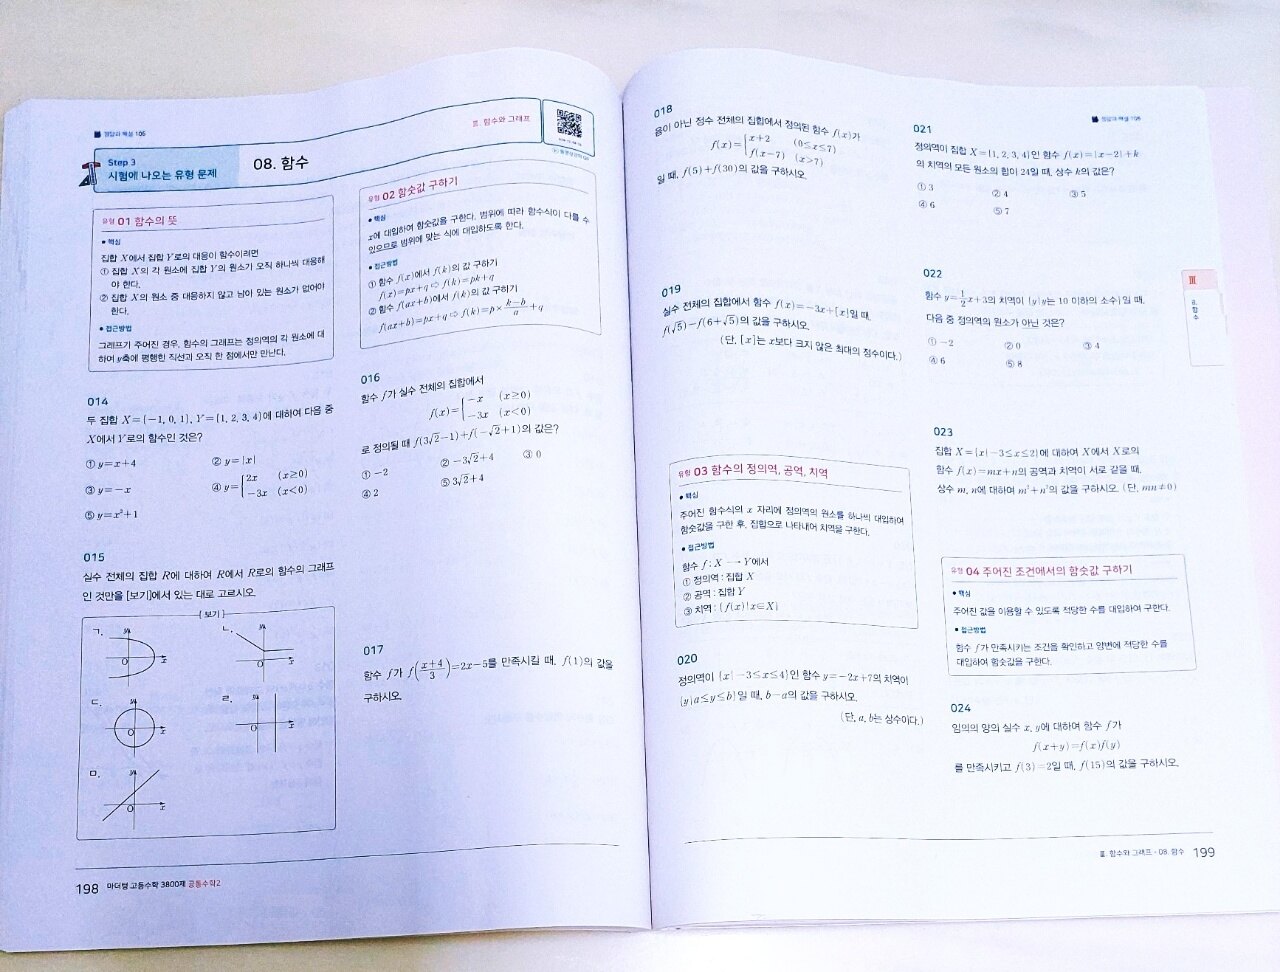 정답과 해설 106
Ⅲ. 함수와 그래프
Step 3
시험에 나오는 유형 문제
08. 함수
유형 01 함수의 뜻
• 핵심
집합 X에서 집합 Y로의 대응이 함수이려면
① 집합 X의 각 원소에 집합 Y의 원소가 오직 하나씩 대응해
야 한다.
② 집합 X의 원소 중 대응하지 않고 남아 있는 원소가 없어야
한다.
• 접근방법
그래프가 주어진 경우, 함수의 그래프는 정의역의 각 원소에 대
하여 y축에 평행한 직선과 오직 한 점에서만 만난다.
014
두 집합 X={-1, 0, 1}, Y={1, 2, 3, 4}에 대하여 다음 중
X에서 Y로의 함수인 것은?
① y=x+4 ② y=|x|
③ y=-x ④ y={2x (x≥0)
-3x (x<0)
⑤ y=x²+1
015
실수 전체의 집합 R에 대하여 R에서 R로의 함수의 그래프
인 것만을 [보기]에서 있는 대로 고르시오.
[보기]
ㄱ. y O x ㄴ. y O x
ㄷ. y O x ㄹ. y O x
ㅁ. y O x
유형 02 함숫값 구하기
• 핵심
x에 대입하여 함숫값을 구한다. 범위에 따라 함수식이 다를 수
있으므로 범위에 맞는 식에 대입하도록 한다.
• 접근방법
① 함수 f(x)에서 f(k)의 값 구하기
f(x)=px+q ⇨ f(k)=pk+q
② 함수 f(ax+b)에서 f(k)의 값 구하기
f(ax+b)=px+q ⇨ f(k)=p×(k-b)/a+q
016
함수 f가 실수 전체의 집합에서
f(x)={-x (x≥0)
-3x (x<0)
로 정의될 때 f(3√2-1)+f(-√2+1)의 값은?
① -2 ② -3√2+4 ③ 0
④ 2 ⑤ 3√2+4
017
함수 f가 f((x+4)/3)=2x-5를 만족시킬 때, f(1)의 값을
구하시오.
198 마더텅 고등수학 3800제 공통수학2
018
음이 아닌 정수 전체의 집합에서 정의된 함수 f(x)가
f(x)={x+2 (0≤x≤7)
f(x-7) (x>7)
일 때, f(5)+f(30)의 값을 구하시오.
019
실수 전체의 집합에서 함수 f(x)=-3x+[x]일 때,
f(√5)-f(6+√5)의 값을 구하시오.
(단, [x]는 x보다 크지 않은 최대의 정수이다.)
유형 03 함수의 정의역, 공역, 치역
• 핵심
주어진 함수식의 x 자리에 정의역의 원소를 하나씩 대입하여
함숫값을 구한 후, 집합으로 나타내어 치역을 구한다.
• 접근방법
함수 f : X → Y에서
① 정의역 : 집합 X
② 공역 : 집합 Y
③ 치역 : {f(x)|x∈X}
020
정의역이 {x|-3≤x≤4}인 함수 y=-2x+7의 치역이
{y|a≤y≤b}일 때, b-a의 값을 구하시오.
(단, a, b는 상수이다.)
정답과 해설 106
021
정의역이 집합 X={1, 2, 3, 4}인 함수 f(x)=|x-2|+k
의 치역의 모든 원소의 합이 24일 때, 상수 k의 값은?
① 3 ② 4 ③ 5
④ 6 ⑤ 7
022
함수 y=1/2x+3의 치역이 {y|y는 10 이하의 소수}일 때,
다음 중 정의역의 원소가 아닌 것은?
① -2 ② 0 ③ 4
④ 6 ⑤ 8
023
집합 X={x|-3≤x≤2}에 대하여 X에서 X로의
함수 f(x)=mx+n의 공역과 치역이 서로 같을 때,
상수 m, n에 대하여 m²+n²의 값을 구하시오. (단, mn≠0)
유형 04 주어진 조건에서의 함숫값 구하기
• 핵심
주어진 값을 이용할 수 있도록 적당한 수를 대입하여 구한다.
• 접근방법
함수 f가 만족시키는 조건을 확인하고 양변에 적당한 수를
대입하여 함숫값을 구한다.
024
임의의 양의 실수 x, y에 대하여 함수 f가
f(x+y)=f(x)f(y)
를 만족시키고 f(3)=2일 때, f(15)의 값을 구하시오.
Ⅲ
함수
Ⅲ. 함수와 그래프 - 08. 함수 199